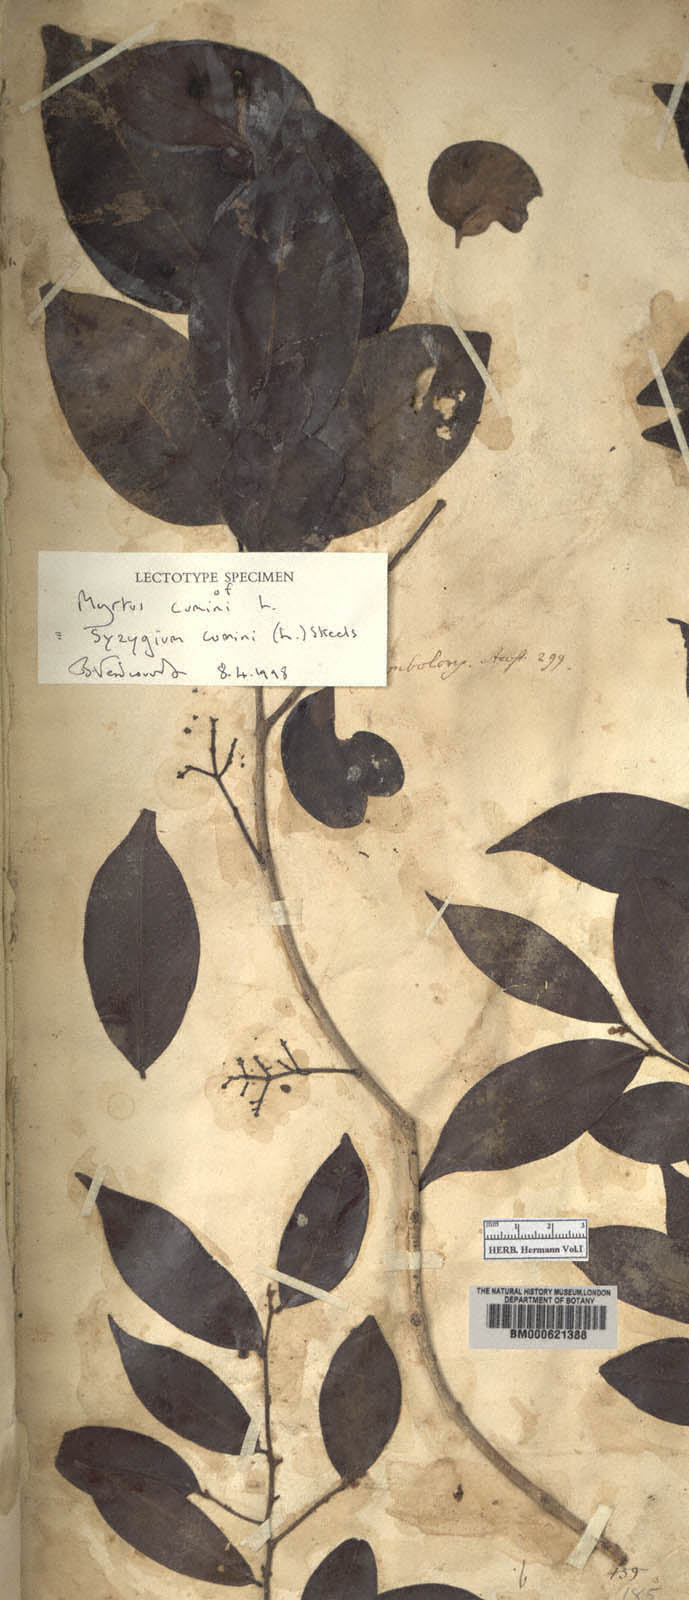 LECTOTYPE SPECIMEN
of
Myrtus cumini L.
= Syzygium cumini (L.) Skeels
BVerdcourt 8.4.1998
299.
mm 1 2 3
HERB. Hermann Vol.I
THE NATURAL HISTORY MUSEUM, LONDON
DEPARTMENT OF BOTANY
BM000621388
139
185